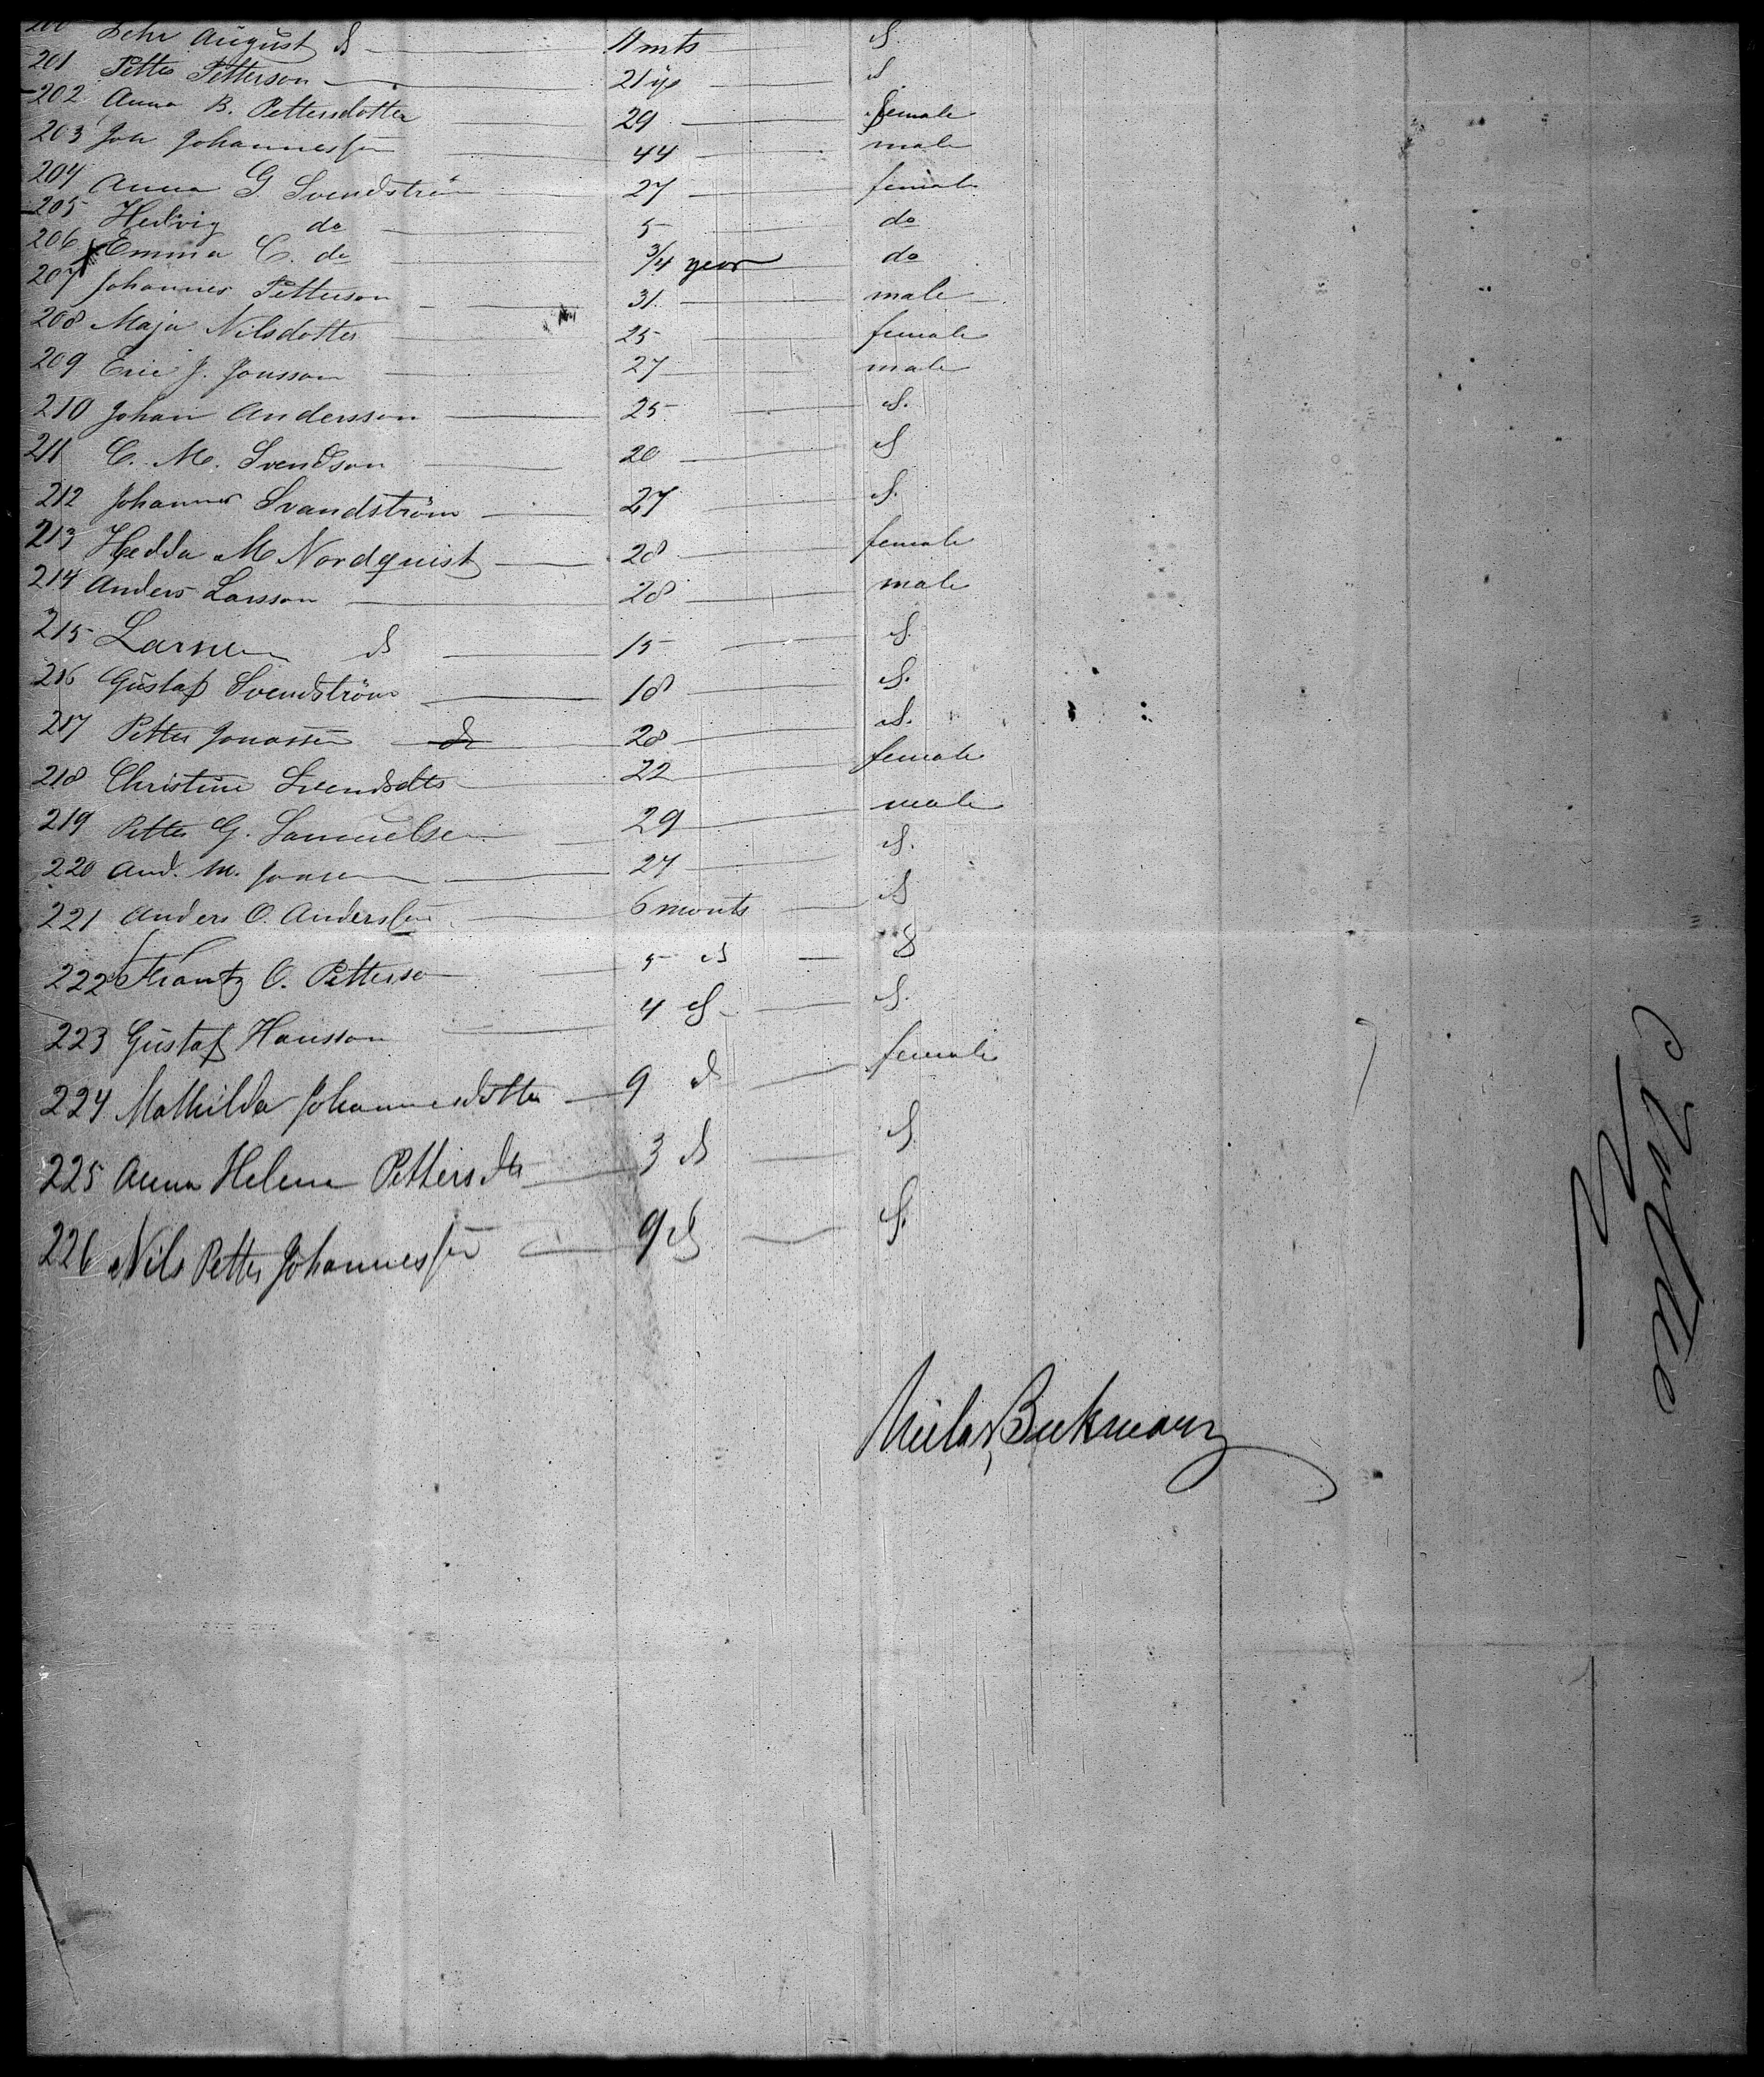 200 Lehr August do 11 mts do
201 Petter Petterson 21 ys do
202 Anna B. Pettersdotter 29 female
203 Joh Johannesson 44 male
204 Anna G. Svendström 27 female
205 Hedvig do 5 do
206 Emma C. do 3/4 year do
207 Johannes Petterson 31 male
208 Maja Nilsdotter 25 female
209 Eric J. Jonsson 27 male
210 Johan Andersson 25 do
211 C. M. Svendson 20 do
212 Johannes Svandström 27 do
213 Hedda M Nordquist 28 female
214 Anders Larsson 28 male
215 Larsen do 15 do
216 Gustaf Svendström 18 do
217 Petter Jonassen do 28 do
218 Christine Svendsdts 22 female
219 Petter G. Samuelsen 29 male
220 And. M. Jonsen 27 do
221 Anders O. Anderssen 6 monts do
222 Frantz O. Petterso 5 do do
223 Gustaf Hansson 4 do do
224 Mathilda Johannesdotter 9 do female
225 Anna Helena Petters dtr 3 do do
226 Nils Petter Johannessen 9 do do
Beckmann